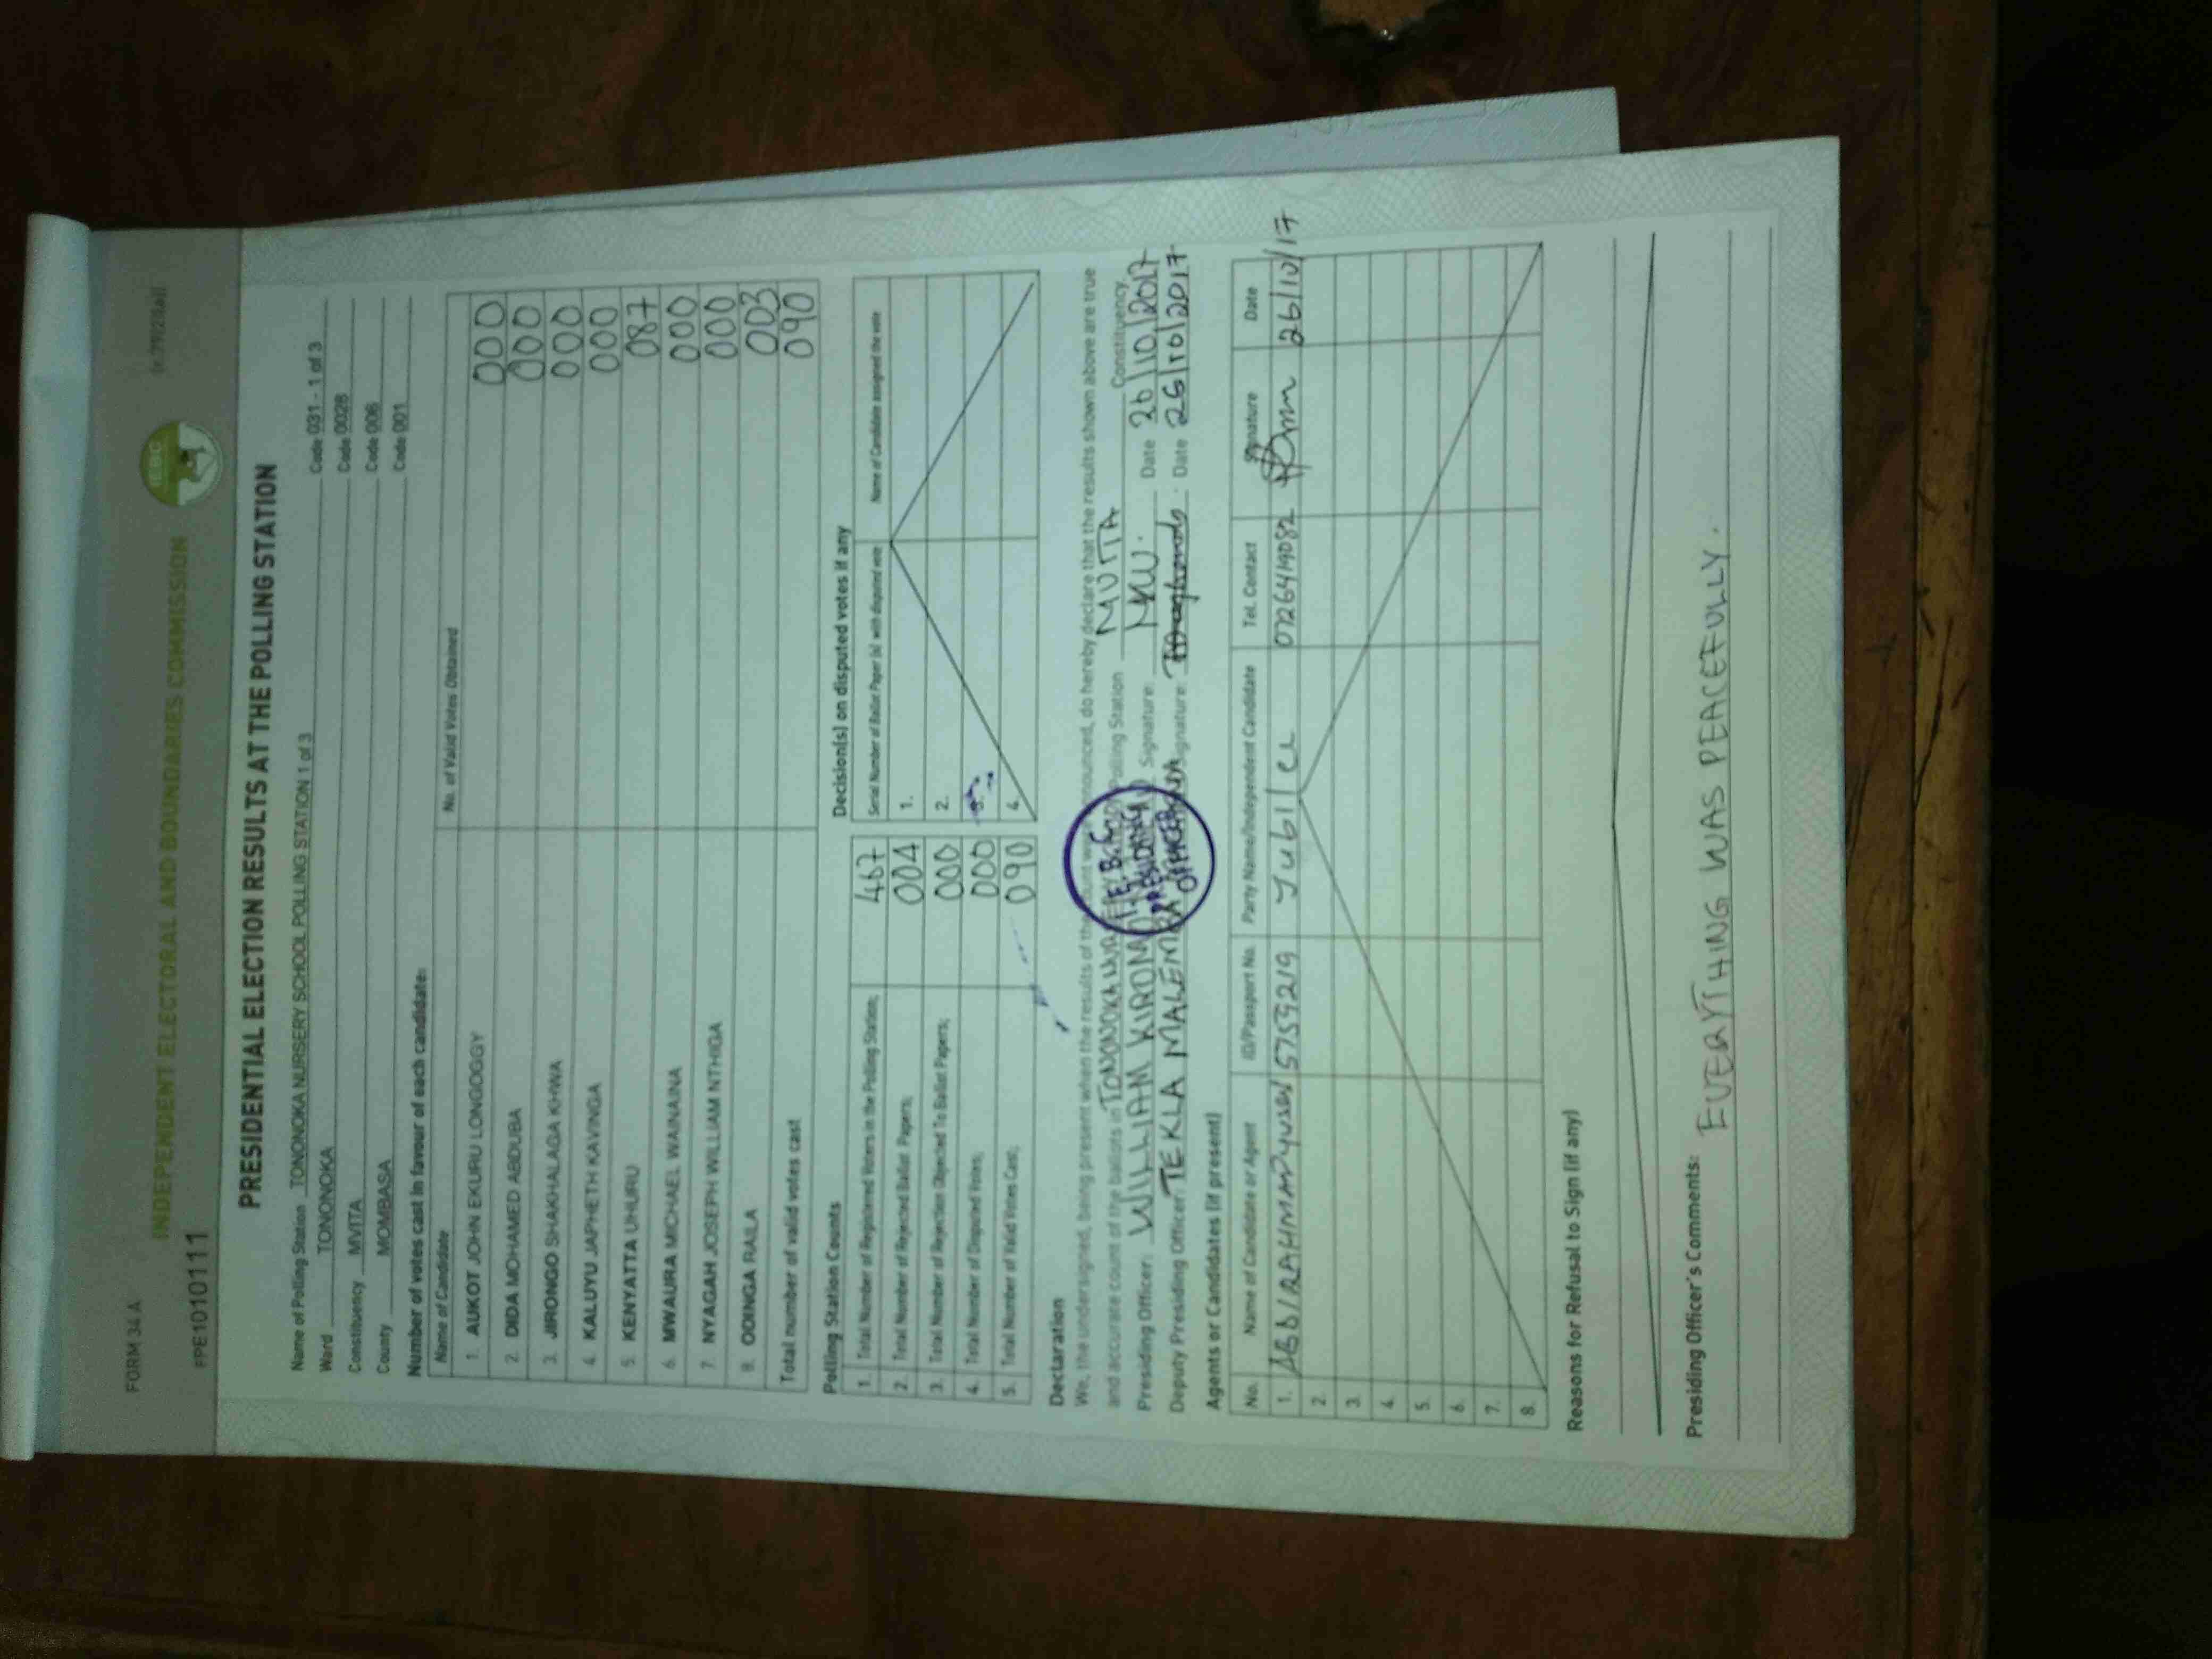 FORM 34 A
INDEPENDENT ELECTORAL AND BOUNDARIES COMMISSION
IEBC
FPE1010111
PRESIDENTIAL ELECTION RESULTS AT THE POLLING STATION
Name of Polling Station TONONOKA NURSERY SCHOOL POLLING STATION 1 of 3 Code 031 - 1 of 3
Ward TONONOKA Code 0028
Constituency MVITA Code 006
County MOMBASA Code 001
Number of votes cast in favour of each candidate:
Name of Candidate No. of Valid Votes Obtained
1. AUKOT JOHN EKURU LONGOGGY 000
2. DIDA MOHAMED ABDUBA 000
3. JIRONGO SHAKHALAGA KHWA 000
4. KALUYU JAPHETH KAVINGA 000
5. KENYATTA UHURU 087
6. MWAURA MICHAEL WAINAINA 000
7. NYAGAH JOSEPH WILLIAM NTHIGA 000
8. ODINGA RAILA 003
Total number of valid votes cast 090
Polling Station Counts
1. Total Number of Registered Voters in the Polling Station; 467
2. Total Number of Rejected Ballot Papers; 004
3. Total Number of Rejection Objected To Ballot Papers; 000
4. Total Number of Disputed Votes; 000
5. Total Number of Valid Votes Cast; 090
Decision(s) on disputed votes if any
Serial Number of Ballot Paper (s) with disputed vote Name of Candidate assigned the vote
1.
2.
3.
4.
Declaration
We, the undersigned, being present when the results of the count were announced, do hereby declare that the results shown above are true
and accurate count of the ballots in TONONOKA Polling Station MVITA Constituency.
Presiding Officer: WILLIAM Signature: Date 26/10/2017
Deputy Presiding Officer: TEKLA Signature: Date 26/10/2017
I.E.B.C
PRESIDING
OFFICER
Agents or Candidates (if present)
No. Name of Candidate or Agent ID/Passport No. Party Name/Independent Candidate Tel. Contact Signature Date
1. 26/10/17
2.
3.
4.
5.
6.
7.
8.
Reasons for Refusal to Sign (if any)
Presiding Officer's Comments:
EVERYTHING WAS PEACEFULLY.